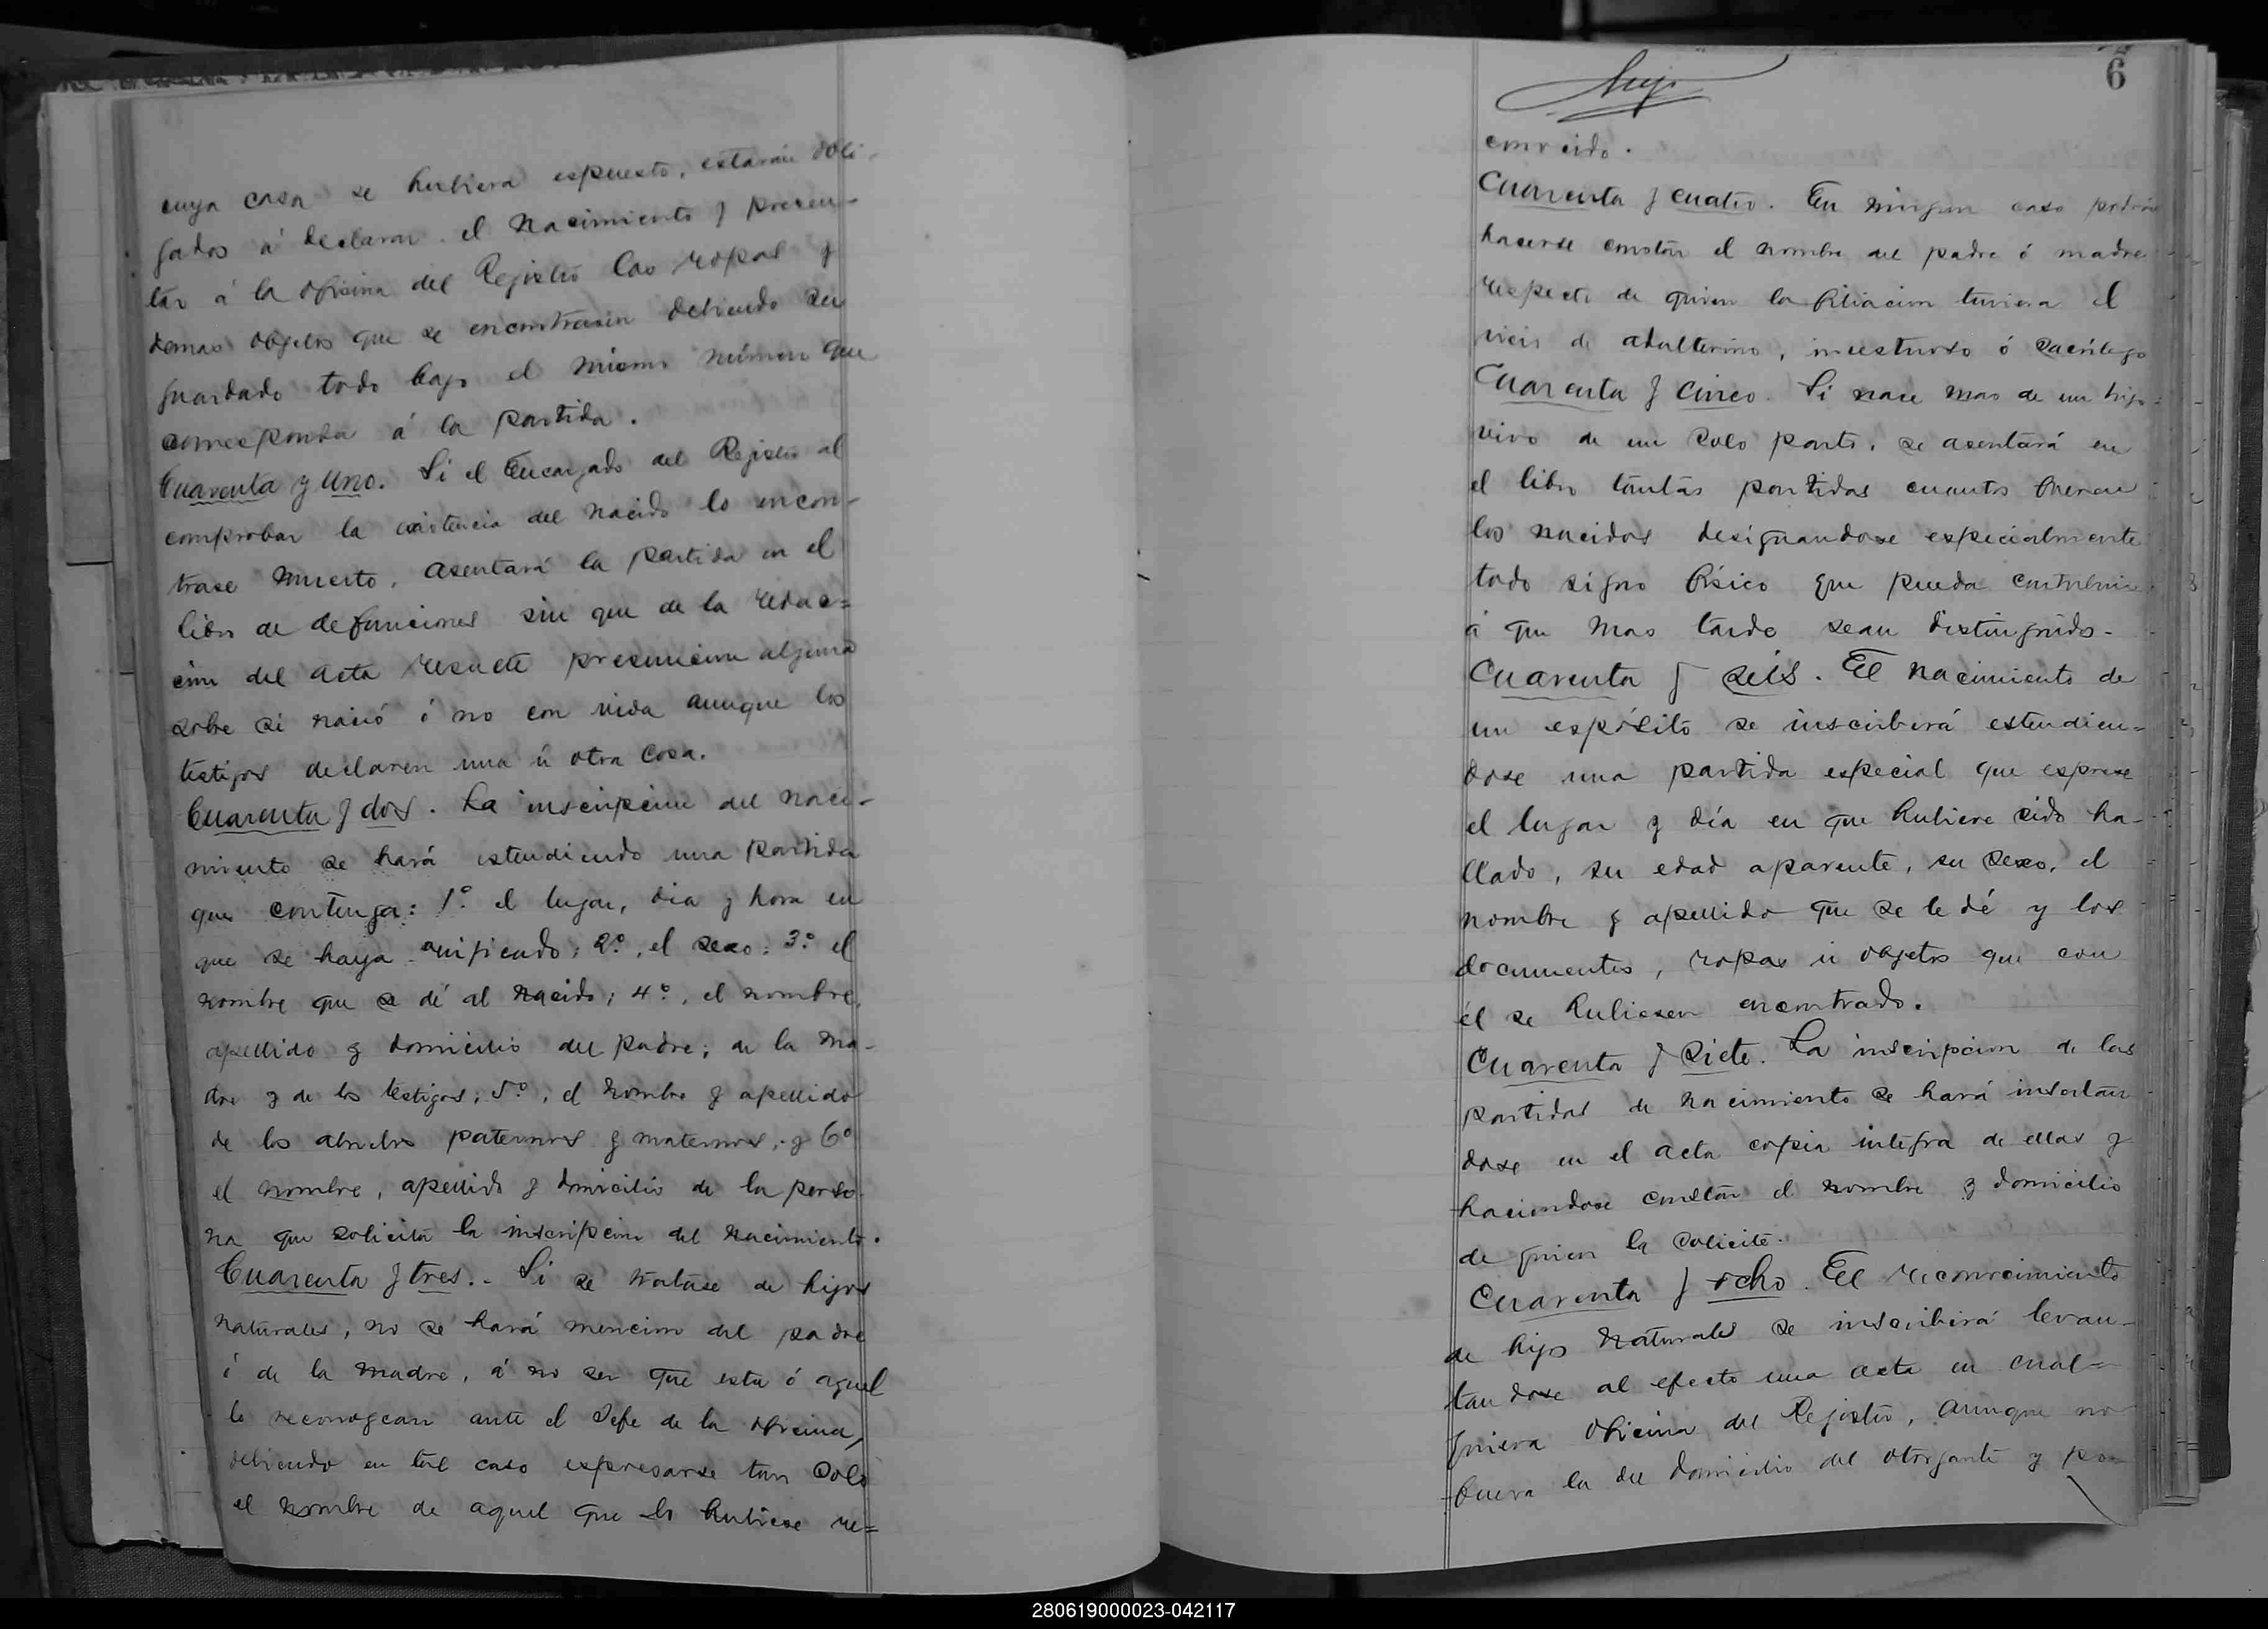 cuya casa se hubiera espuesto, estarán obli-
gados á declarar el nacimiento y presen-
tar á la oficina del Registro las ropas y
demas objetos que se encontrasen debiendo ser
guardado todo bajo el mismo número que
corresponda á la partida.
Cuarenta y uno. Si el Encargado del Registro al
comprobar la existencia del nacido lo encon-
trase muerto, asentará la partida en el
libro de defunciones sin que de la redac=
cion del acta resulte presuncion alguna
sobre si nació ó no con vida aunque los
testigos declaren una ú otra cosa.
Cuarenta y dos. La inscripcion del naci-
miento se hará estendiendo una partida
que contenga: 1º el lugar, dia y hora en
que se haya verificado; 2º, el sexo; 3º el
nombre que se dé al nacido; 4º, el nombre,
apellido y domicilio del padre; de la ma-
dre y de los testigos; 5º, el nombre y apellido
de los abuelos paternos y maternos; y 6º
el nombre, apellido y domicilio de la perso-
na que solicita la inscripcion del nacimiento.
Cuarenta y tres.- Si se tratase de hijos
naturales, no se hará mencion del padre
ó de la madre, á no ser que esta ó aquel
lo reconozcan ante el Jefe de la oficina,
debiendo en tal caso espresarse tan solo
el nombre de aquel que lo hubiese re=
6
conocido.
Cuarenta y cuatro. En ningun caso podrá
hacerse constar el nombre del padre ó madre
respecto de quien la filiacion tuviera el
vicio de adulterino, incestuoso ó sacrílego
Cuarenta y cinco. Si nace mas de un hijo
vivo de un solo parto, se asentará en
el libro tantas partidas cuantos fueren
los nacidos designandose especialmente
todo signo físico que pueda contribuir
á que mas tarde sean distinguidos.
Cuarenta y seis. El nacimiento de
un espósito se inscribirá estendien=
dose una partida especial que esprese
el lugar y día en que hubiere sido ha-
llado, su edad aparente, su sexo, el
nombre y apellido que se le dé y los
documentos, ropas ú objetos que con
él se hubiesen encontrado.
Cuarenta y siete. La inscripcion de las
partidas de nacimiento se hará insertan
dose en el acta copia integra de ellas y
haciendose constar el nombre y domicilio
de quien la solicite.
Cuarenta y ocho. El reconocimiento
de hijos naturales se inscribirá levan-
tandose al efecto una acta en cual=
quiera oficina del Registro, aunque no
fuera la del domicilio del otorgante y por
280619000023-042117